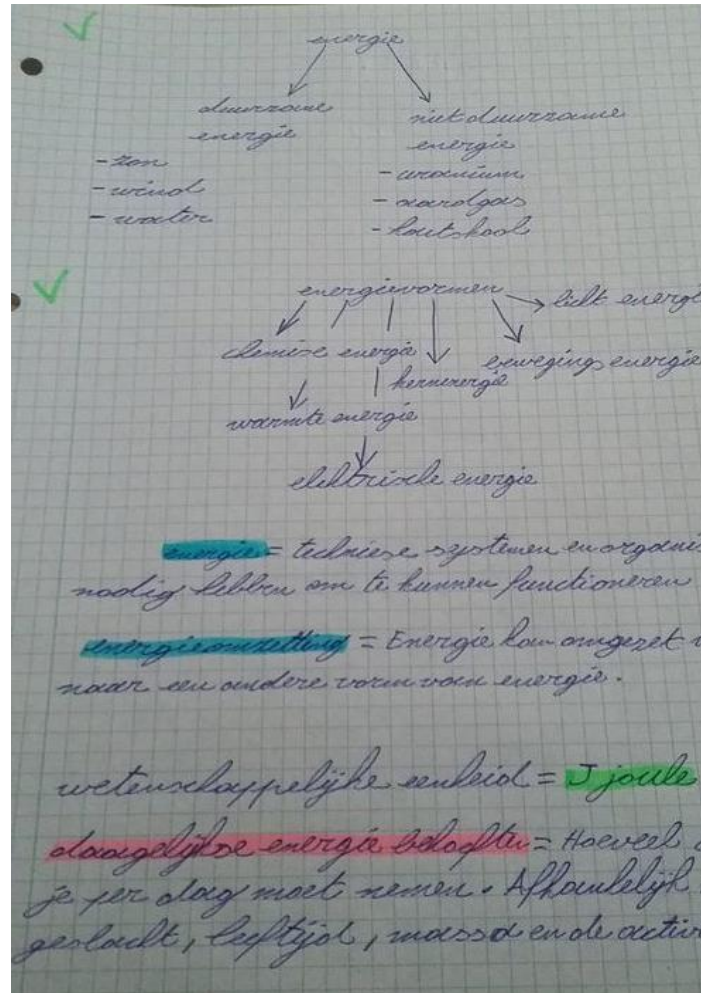 energie
duurzame
energie
- zon
- wind
- water
niet duurzame
energie
- uranium
- aardgas
- houtskool
energievormen
licht energi
chemise energie
bewegings energie
kernenergie
warmte energie
elektrische energie
energie = techniese systemen en organis
nodig hebben om te kunnen functioneren
energieomzetting = Energie kan omgezet
naar een andere vorm van energie.
wetenschappelijke eenheid = J joule
daagelijkse energie behoefte = Hoeveel
je per dag moet nemen. Afhankelijk
geslacht, leeftijd, massa en de activ